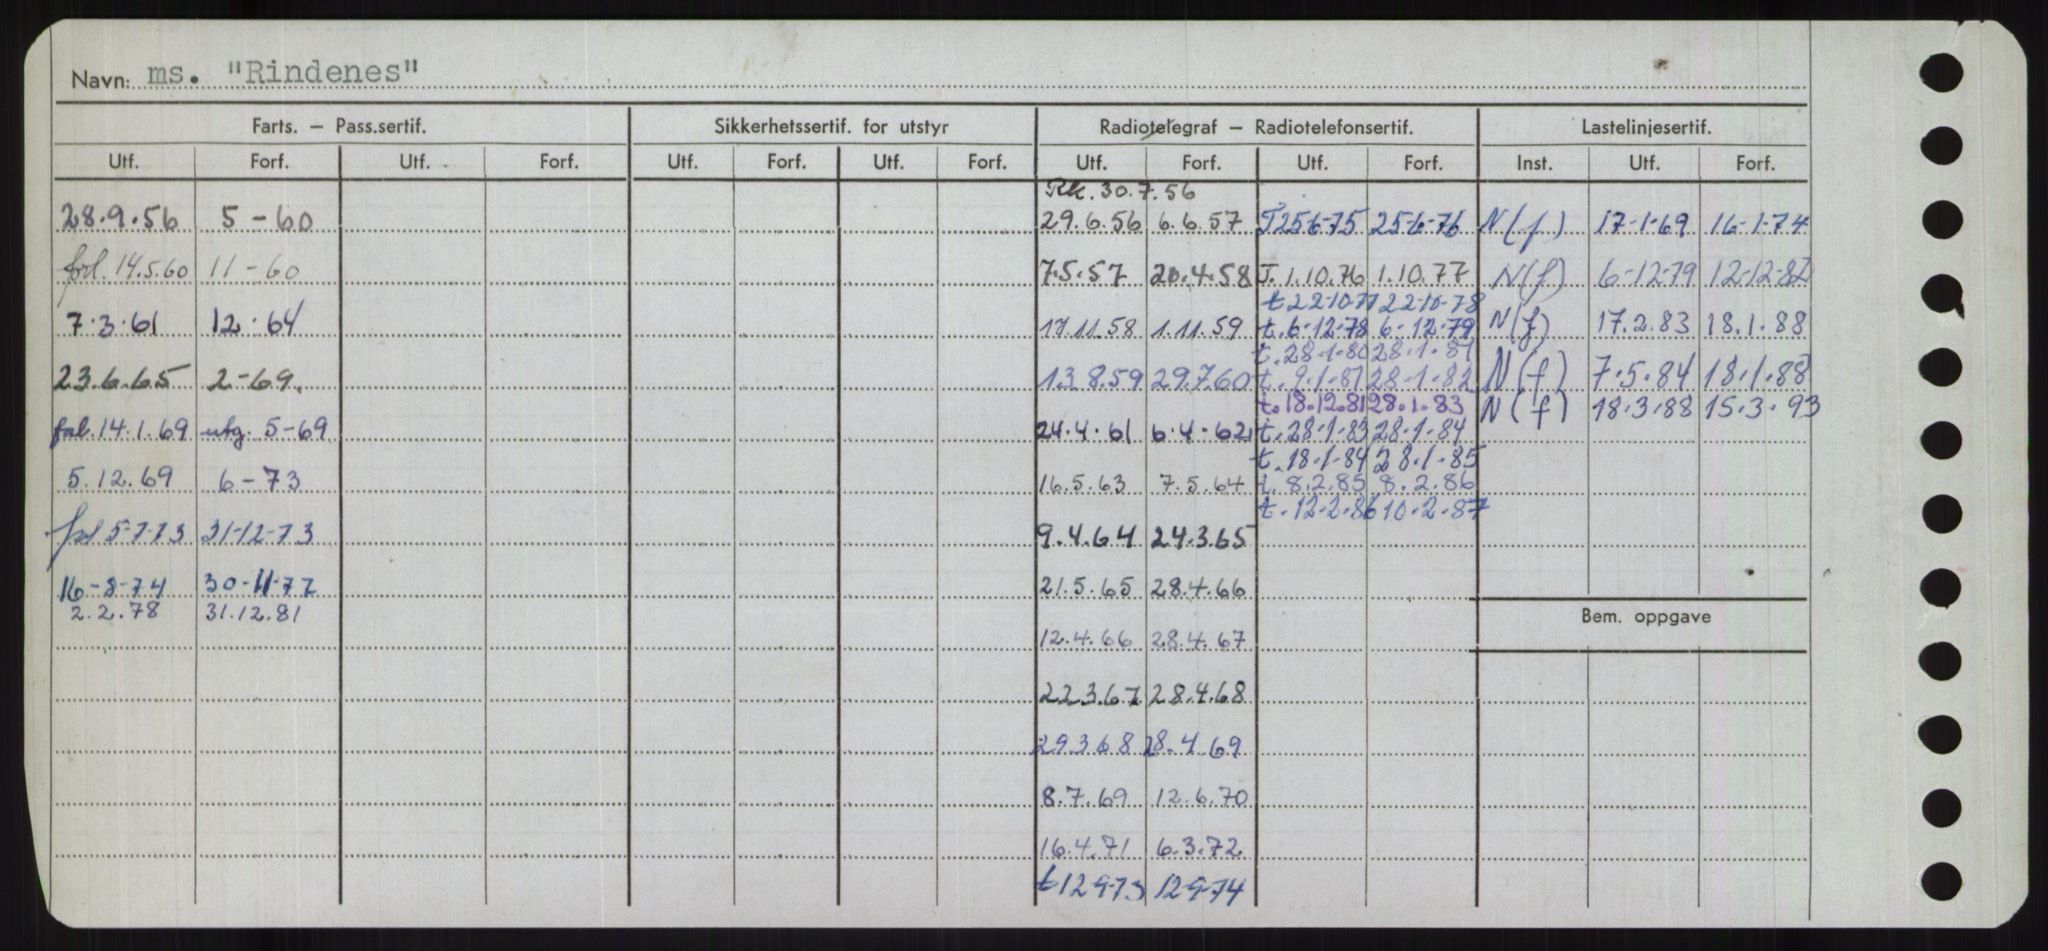 Navn: ms. "Rindenes"
Farts. – Pass.sertif. Sikkerhetssertif. for utstyr Radiotelegraf – Radiotelefonsertif. Lastelinjesertif.
Utf. Forf. Utf. Forf. Utf. Forf. Utf. Forf. Utf. Forf. Utf. Forf. Inst. Utf. Forf.
30.7.56
28.9.56 5-60 29.6.56 6.6.57 T 25-6-75 25-6-76 N(f) 17-1-69 16-1-74
forl. 14.5.60 11-60 7.5.57 20.4.58 T. 1.10.76 1.10.77 N(f) 6-12-79 12-12-82
t 22-10-77 22-10-78
7.3.61 12.64 17.11.58 1.11.59 t. 6-12-78 6-12-79 N(f) 17.2.83 18.1.88
t. 28.1.80 28.1.81
23.6.65 2-69. 13.8.59 29.7.60 t. 9.1.81 28-1-82 N(f) 7.5.84 18.1.88
t. 18.12.81 28.1.83 N(f) 18.3.88 15.3.93
forl. 14.1.69 utg. 5-69 24.4.61 6.4.62 t. 28.1.83 28.1.84
t. 18.1.84 28.1.85
5.12.69 6-73 16.5.63 7.5.64 t. 8.2.85 8.2.86
t. 12.2.86 10.2.87
forl 5-7-73 31-12-73 9.4.64 24.3.65
16-8-74 30-11-77 21.5.65 28.4.66
2.2.78 31.12.81
Bem. oppgave
12.4.66 28.4.67
22.3.67 28.4.68
29.3.68 28.4.69
8.7.69 12.6.70
16.4.71 6.3.72
t 12-9-73 12-9-74